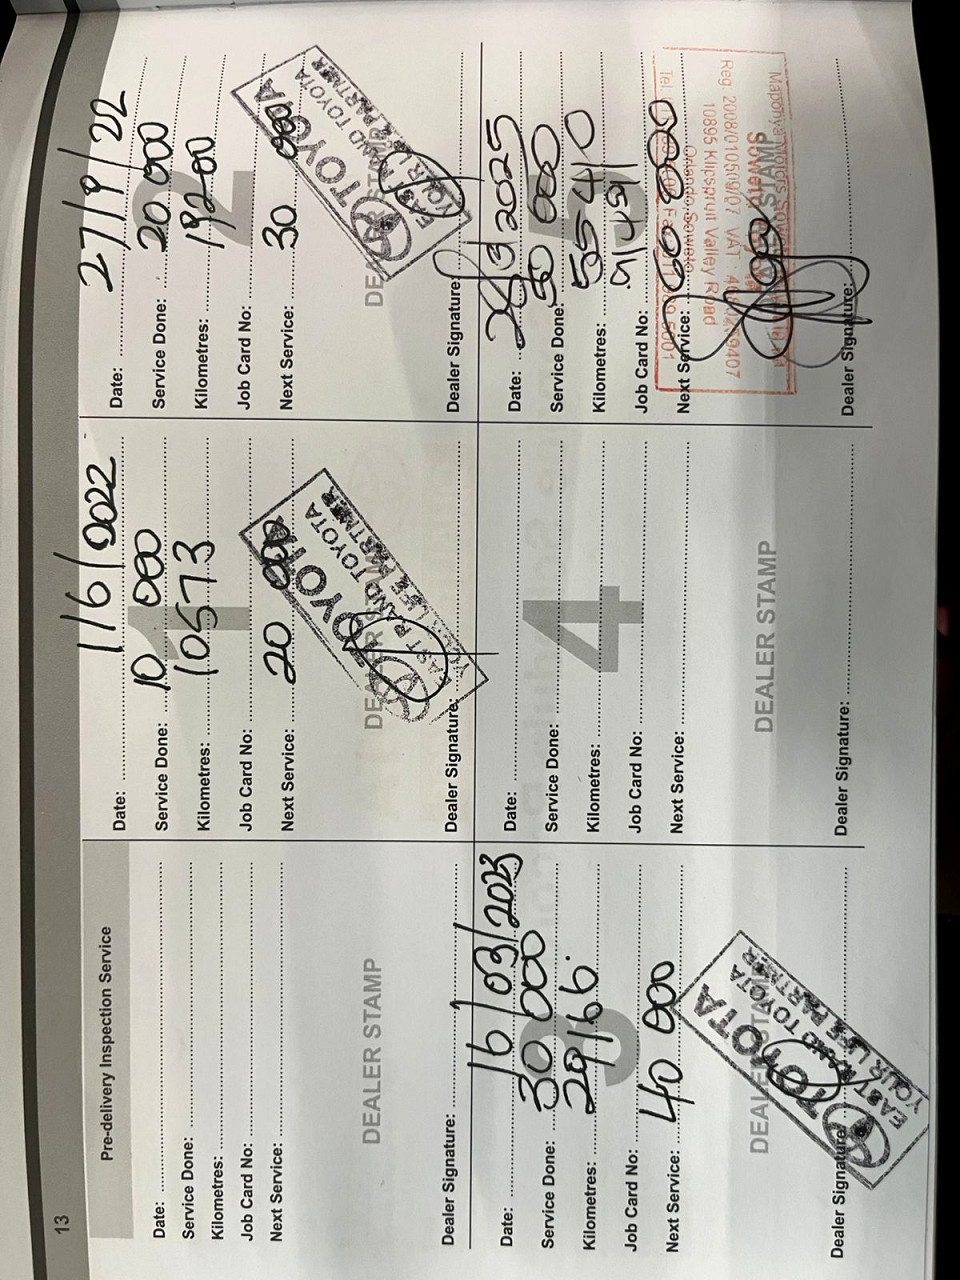 13
Pre-delivery Inspection Service
Date:
Service Done:
Kilometres:
Job Card No:
Next Service:
DEALER STAMP
Dealer Signature:
1
Date: 1/6/2022
Service Done: 10 000
Kilometres: 10573
Job Card No:
Next Service: 20 000
DEALER STAMP
TOYOTA
EAST RAND TOYOTA
YOUR LIFE PARTNER
Dealer Signature:
2
Date: 27/9/22
Service Done: 20.000
Kilometres: 19200
Job Card No:
Next Service: 30 000
DEALER STAMP
TOYOTA
EAST RAND TOYOTA
YOUR LIFE PARTNER
Dealer Signature:
3
Date: 16/03/2023
Service Done: 30 000
Kilometres: 29166.
Job Card No:
Next Service: 40 000
DEALER STAMP
TOYOTA
EAST RAND TOYOTA
YOUR LIFE PARTNER
Dealer Signature:
4
Date:
Service Done:
Kilometres:
Job Card No:
Next Service:
DEALER STAMP
Dealer Signature:
5
Date: 2025
Service Done: 50 000
Kilometres: 55410
Job Card No: 91491
Next Service: 60 000
DEALER STAMP
Maponya Motors
Reg: 2008/010509/07 VAT
10895 Klipspruit Valley Road
Orlando Soweto
Tel.
Dealer Signature: